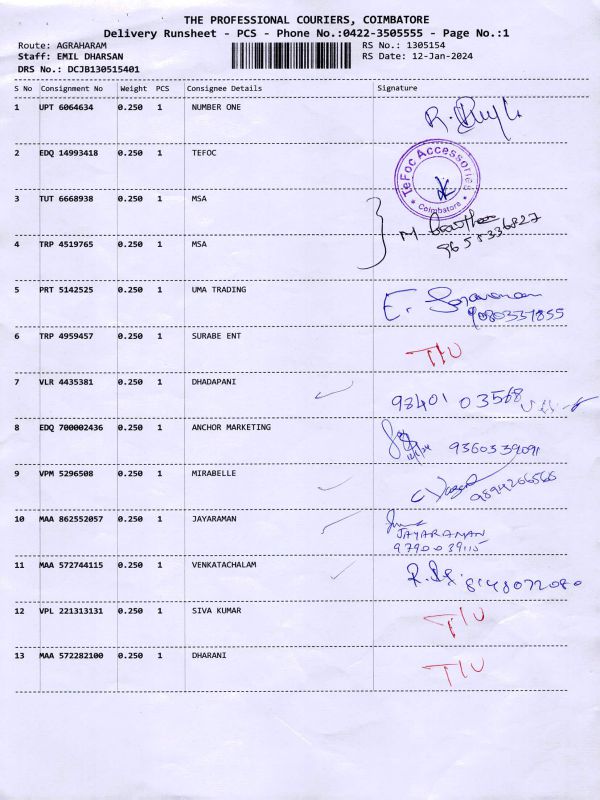 THE PROFESSIONAL COURIERS, COIMBATORE
Delivery Runsheet - PCS - Phone No.:0422-3505555 - Page No.:1
Route: AGRAHARAM RS No.: 1305154
Staff: EMIL DHARSAN RS Date: 12-Jan-2024
DRS No.: DCJB130515401
S No Consignment No Weight PCS Consignee Details Signature
1 UPT 6064634 0.250 1 NUMBER ONE
2 EDQ 14993418 0.250 1 TEFOC
TeFoc Accessories
* Coimbatore *
3 TUT 6668938 0.250 1 MSA
4 TRP 4519765 0.250 1 MSA
9655336827
5 PRT 5142525 0.250 1 UMA TRADING
6 TRP 4959457 0.250 1 SURABE ENT
7 VLR 4435381 0.250 1 DHADAPANI 98401 03568
8 EDQ 700002436 0.250 1 ANCHOR MARKETING 9360539091
9 VPM 5296508 0.250 1 MIRABELLE 9894266566
10 MAA 862552057 0.250 1 JAYARAMAN
JAYARAMAN
9790039115
11 MAA 572744115 0.250 1 VENKATACHALAM 8148072080
12 VPL 221313131 0.250 1 SIVA KUMAR
13 MAA 572282100 0.250 1 DHARANI